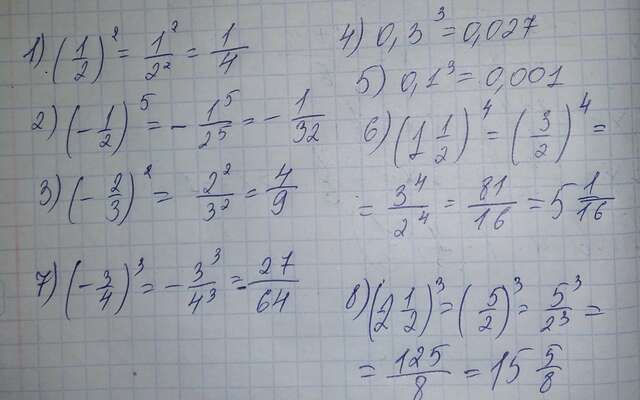 1) (1/2)² = 1²/2² = 1/4
2) (-1/2)⁵ = -1⁵/2⁵ = -1/32
3) (-2/3)² = 2²/3² = 4/9
7) (-3/4)³ = -3³/4³ = -27/64
4) 0,3³ = 0,027
5) 0,1³ = 0,001
6) (1 1/2)⁴ = (3/2)⁴ =
= 3⁴/2⁴ = 81/16 = 5 1/16
8) (2 1/2)³ = (5/2)³ = 5³/2³ =
= 125/8 = 15 5/8